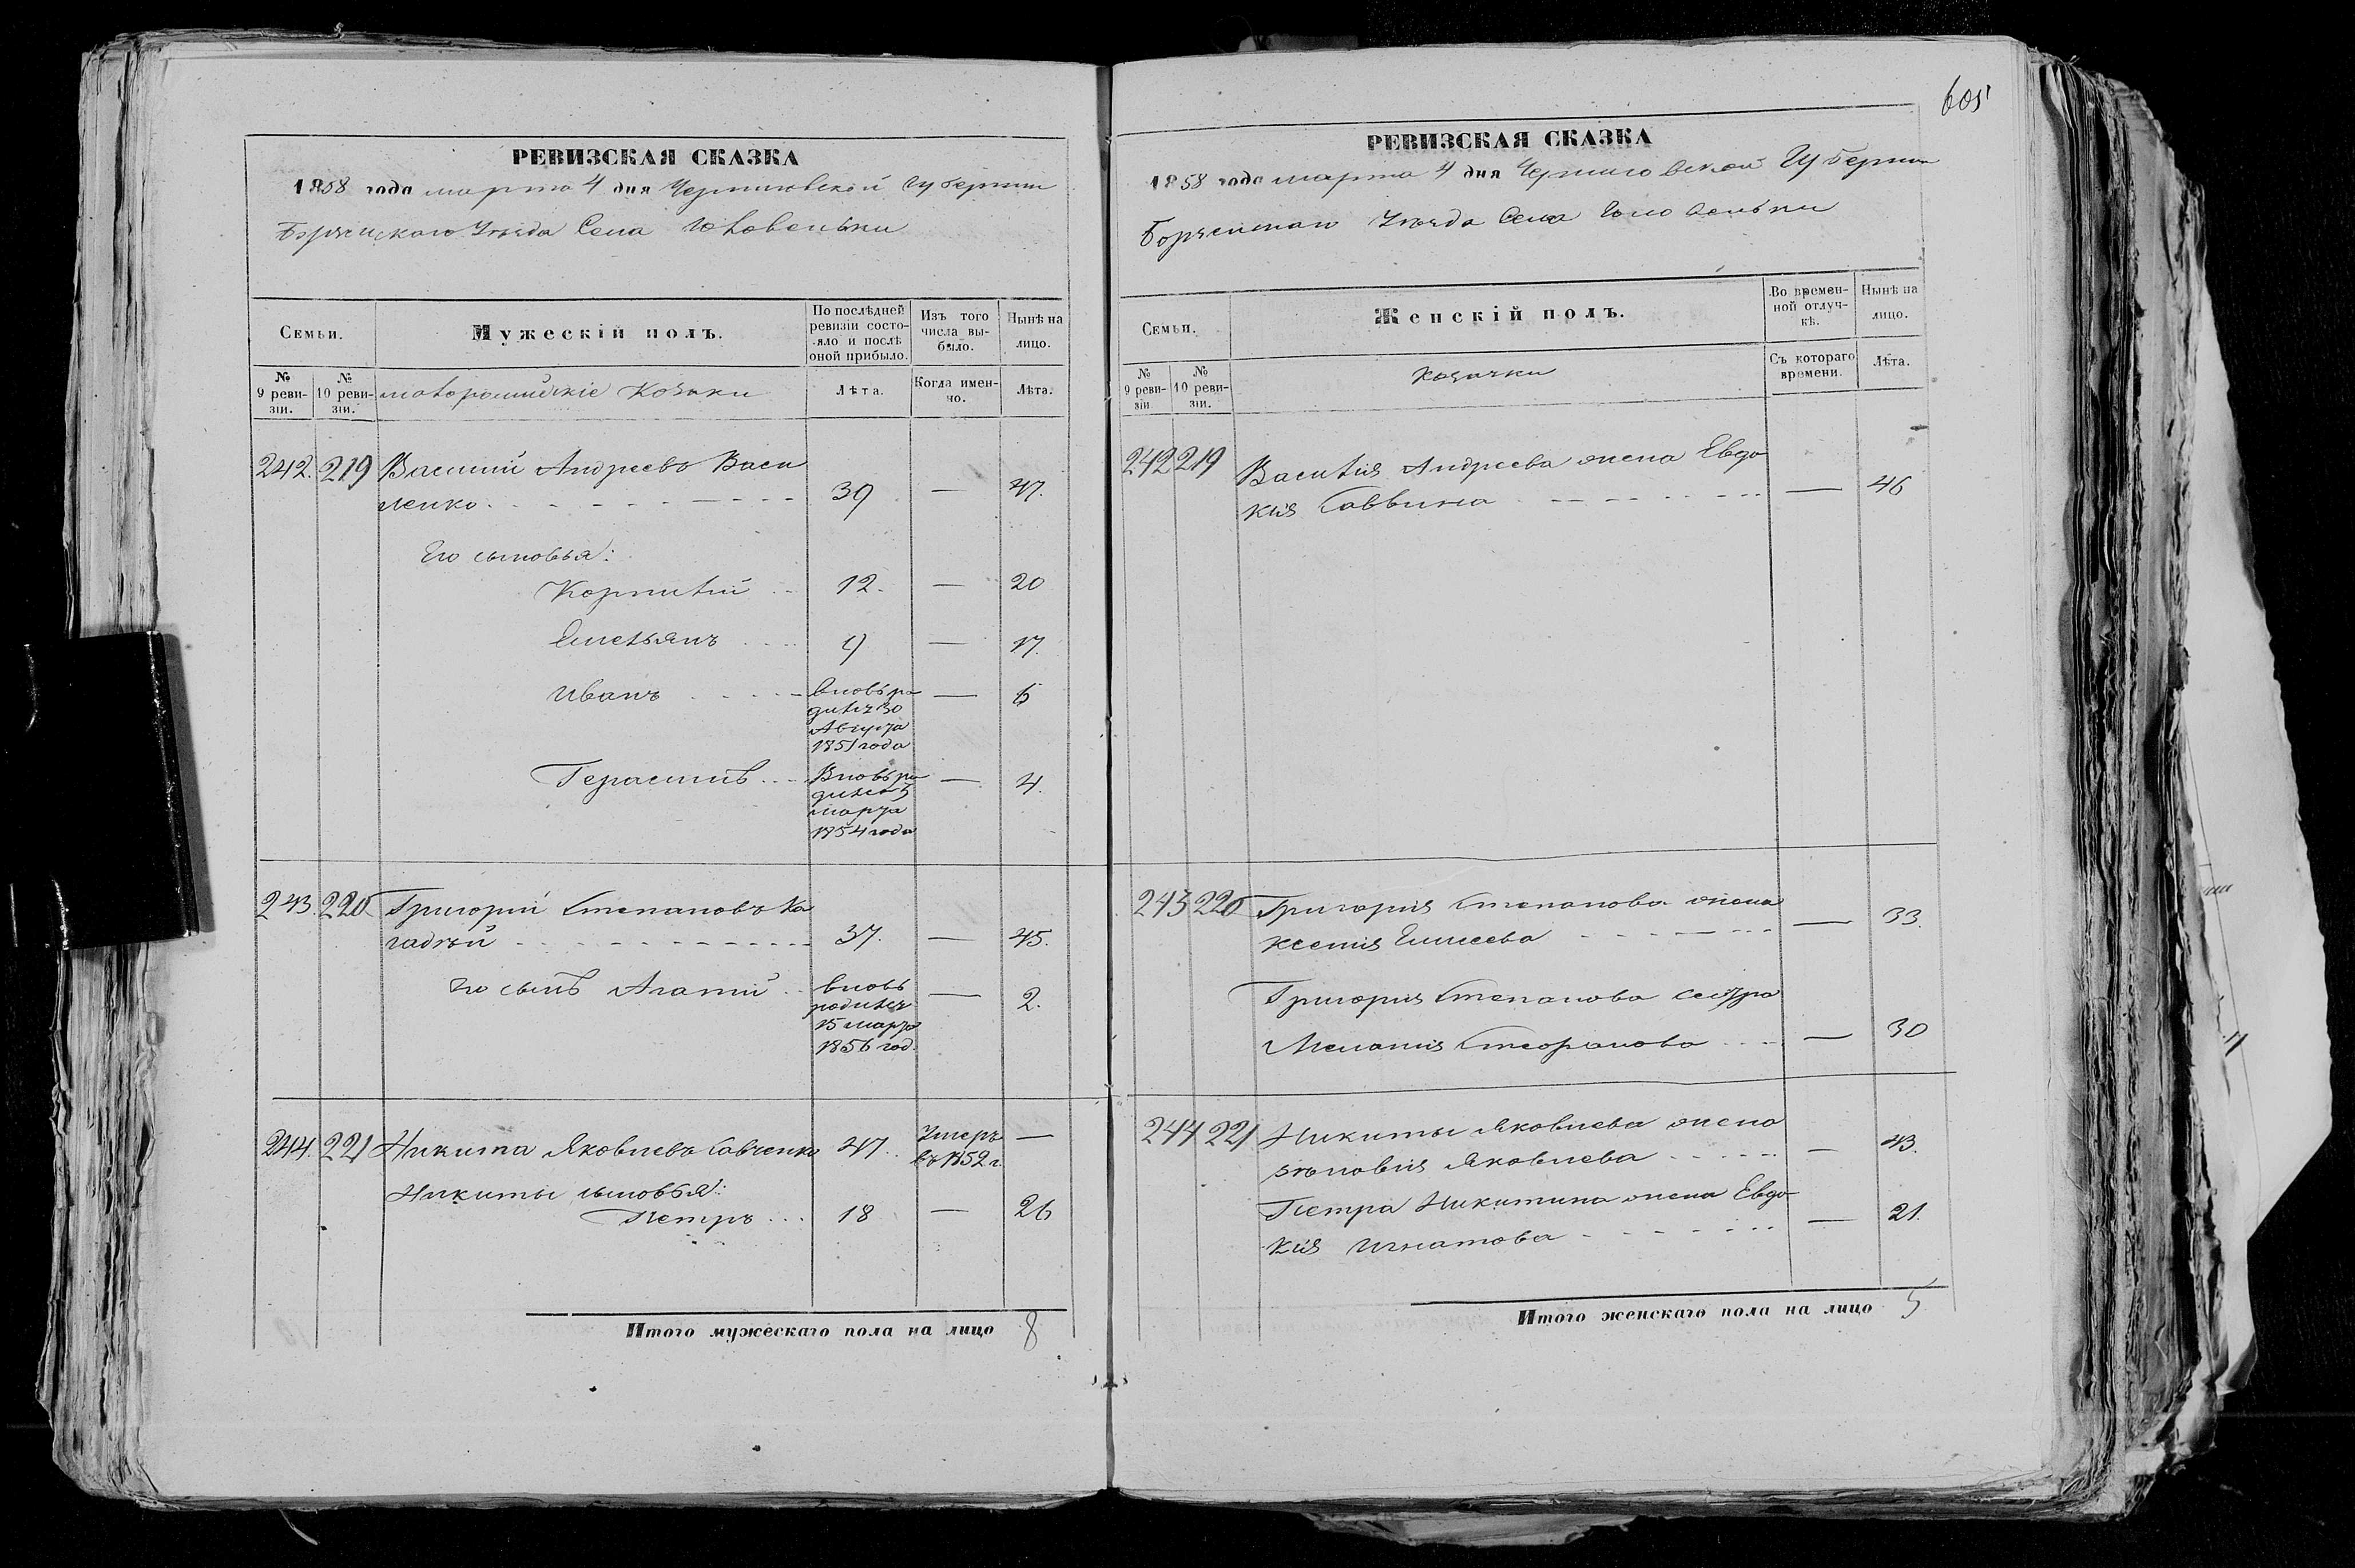 РЕВИЗСКАЯ СКАЗКА
1858 года марта 4 дня Черниговской Губернии
Борзенскаго Уѣзда Села Головеньки
Семьи.
Мужескій полъ.
По послѣдней ревизіи состояло и послѣ оной прибыло.
Изъ того числа выбыло.
Нынѣ на лицо.
№ 9 ревизіи.
№ 10 ревизіи.
малороссійскіе Козаки
Лѣта.
Когда именно.
Лѣта.
242. 219 Василий Андреевъ Васи
ленко 39 — 47.
Его сыновья:
Корнилій 12. — 20
Емельянъ 9 — 17.
Иванъ вновь ро — 6
дилъ 30
Августа
1851 года
Герасимъ Вновь ро — 4.
дилъ 5
марта
1854 года
243. 220 Григорий Степановъ Ка
гадѣй 37. — 45.
его сынъ Агапий вновь — 2.
родилъ
15 марта
1856 год.
244. 221 Никита Яковлевъ Савченко 47. Умеръ —
въ 1852 г.
Никиты сыновья:
Петръ 18 — 26
Итого мужескаго пола на лицо 8
605
РЕВИЗСКАЯ СКАЗКА
1858 года марта 4 дня Черниговской Губернии
Борзенскаго Уѣзда Села Головеньки
Семьи.
Женскій полъ.
Во временной отлучкѣ.
Нынѣ на лицо.
№ 9 ревизіи
№ 10 ревизіи.
Козачки
Съ котораго времени.
Лѣта.
242 219 Василія Андреева жена Евдо
кія Саввина — 46
243 220 Григорія Степанова жена
Ксенія Елисеева — 33.
Григорія Степанова сестра
Меланія Степанова — 30
244 221 Никиты Яковлева жена
Зѣновія Яковлева — 43.
Петра Никитина жена Евдо
кія Игнатова — 21.
Итого женскаго пола на лицо 5